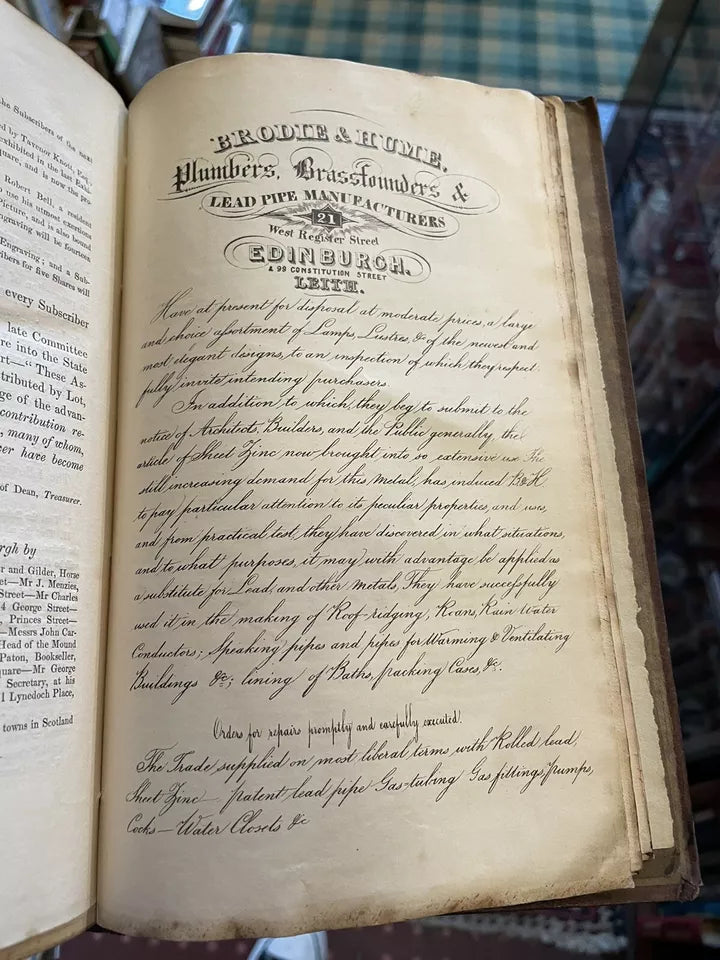 the Subscribers of the
ed by Tavenor Knott, Esq.
exhibited in the last
quare, and is now the pro-
Robert Bell, a resident
to use his utmost exertions
Picture, and is also bound
ngraving will be fourteen
Engraving; and a Sub-
ribers for five Shares will
every Subscriber
late Committee
re into the State
rt—"These As-
tributed by Lot,
ge of the advan-
contribution re-
, many of whom,
ver have become
of Dean, Treasurer.
rgh by
r and Gilder, Horse
et—Mr J. Menzies,
Street—Mr Charles
4 George Street—
, Princes Street—
—Messrs John Car-
Head of the Mound
Paton, Bookseller,
quare—Mr George
Secretary, at his
1 Lynedoch Place,
towns in Scotland
BRODIE & HUME,
Plumbers, Brassfounders &
LEAD PIPE MANUFACTURERS
21
West Register Street
EDINBURGH.
& 98 CONSTITUTION STREET
LEITH.
Have at present for disposal at moderate prices, a large
and choice assortment of Lamps, Lustres, &c of the newest and
most elegant designs, to an inspection of which they respect-
fully invite intending purchasers.
In addition to which, they beg to submit to the
notice of Architects, Builders, and the Public generally, the
article of Sheet Zinc now brought into so extensive use. The
still increasing demand for this Metal, has induced B & H
to pay particular attention to its peculiar properties, and uses,
and from practical test, they have discovered in what situations,
and to what purposes, it may with advantage be applied as
a substitute for Lead, and other Metals. They have successfully
used it in the making of Roof-ridging, Roans, Rain Water
Conductors; Speaking pipes and pipes for Warming & Ventilating
Buildings &c; lining of Baths, packing Cases, &c.
Orders for repairs promptly and carefully executed.
The Trade supplied on most liberal terms with Rolled lead,
Sheet Zinc— patent lead pipe Gas-tubing Gas fittings, Pumps,
Cocks—Water Closets &c